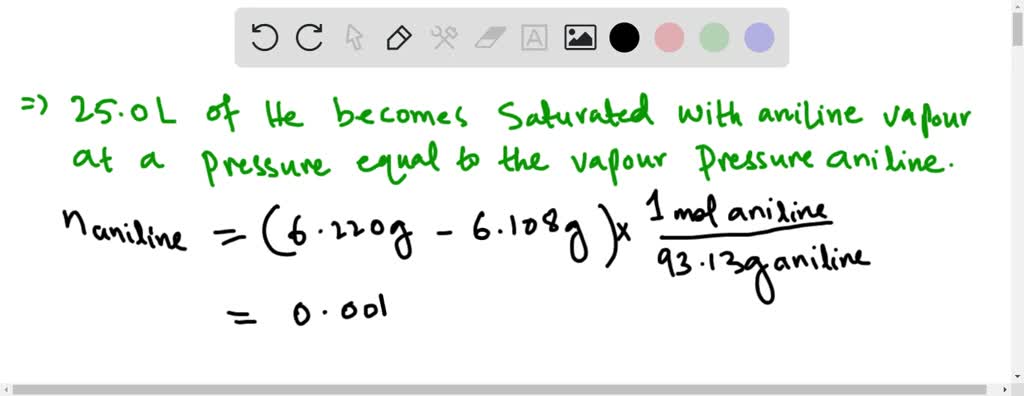 A
=) 25.0L of He becomes Saturated with aniline vapour
at a pressure equal to the vapour Pressure aniline.
n aniline = (6.220g - 6.108g) x 1 mol aniline / 93.13g aniline
= 0.001